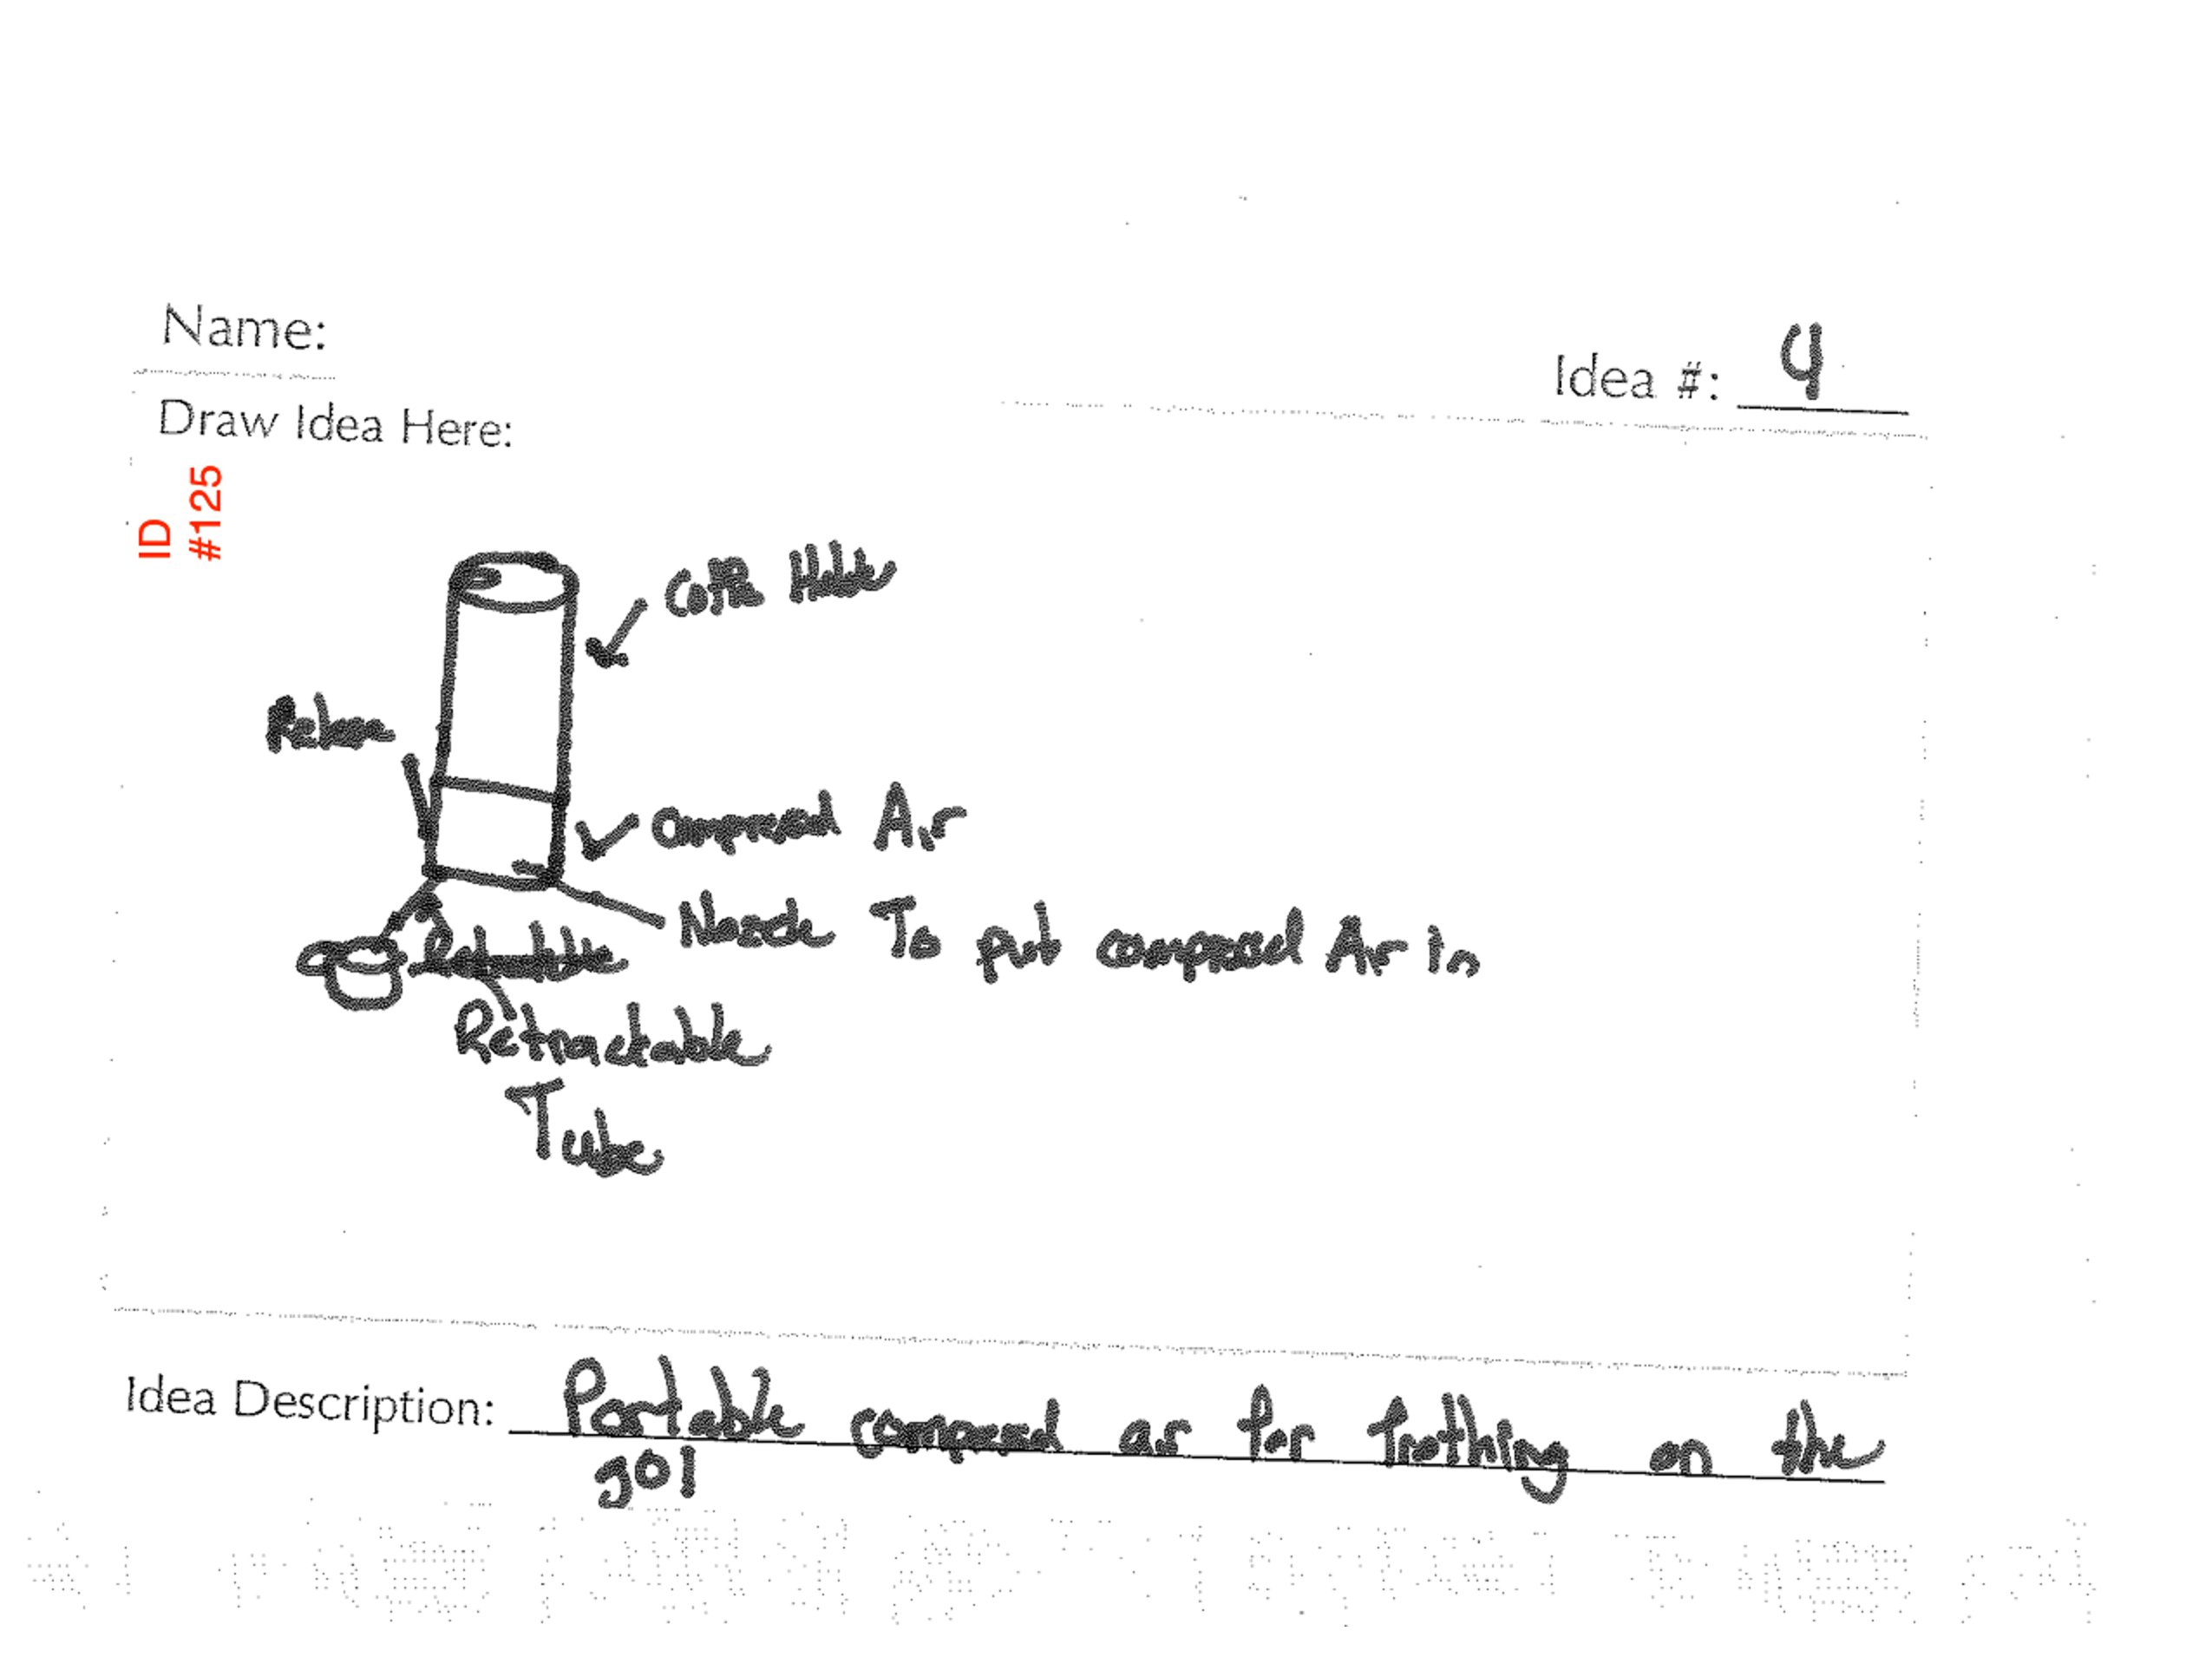 Name:
Idea #: 4
Draw Idea Here:
ID
#125
Coffee Holder
Release
Compressed Air
Nozzle To put compressed Air in
Retractable
Retractable
Tube
Idea Description: Portable compressed air for frothing on the
go!